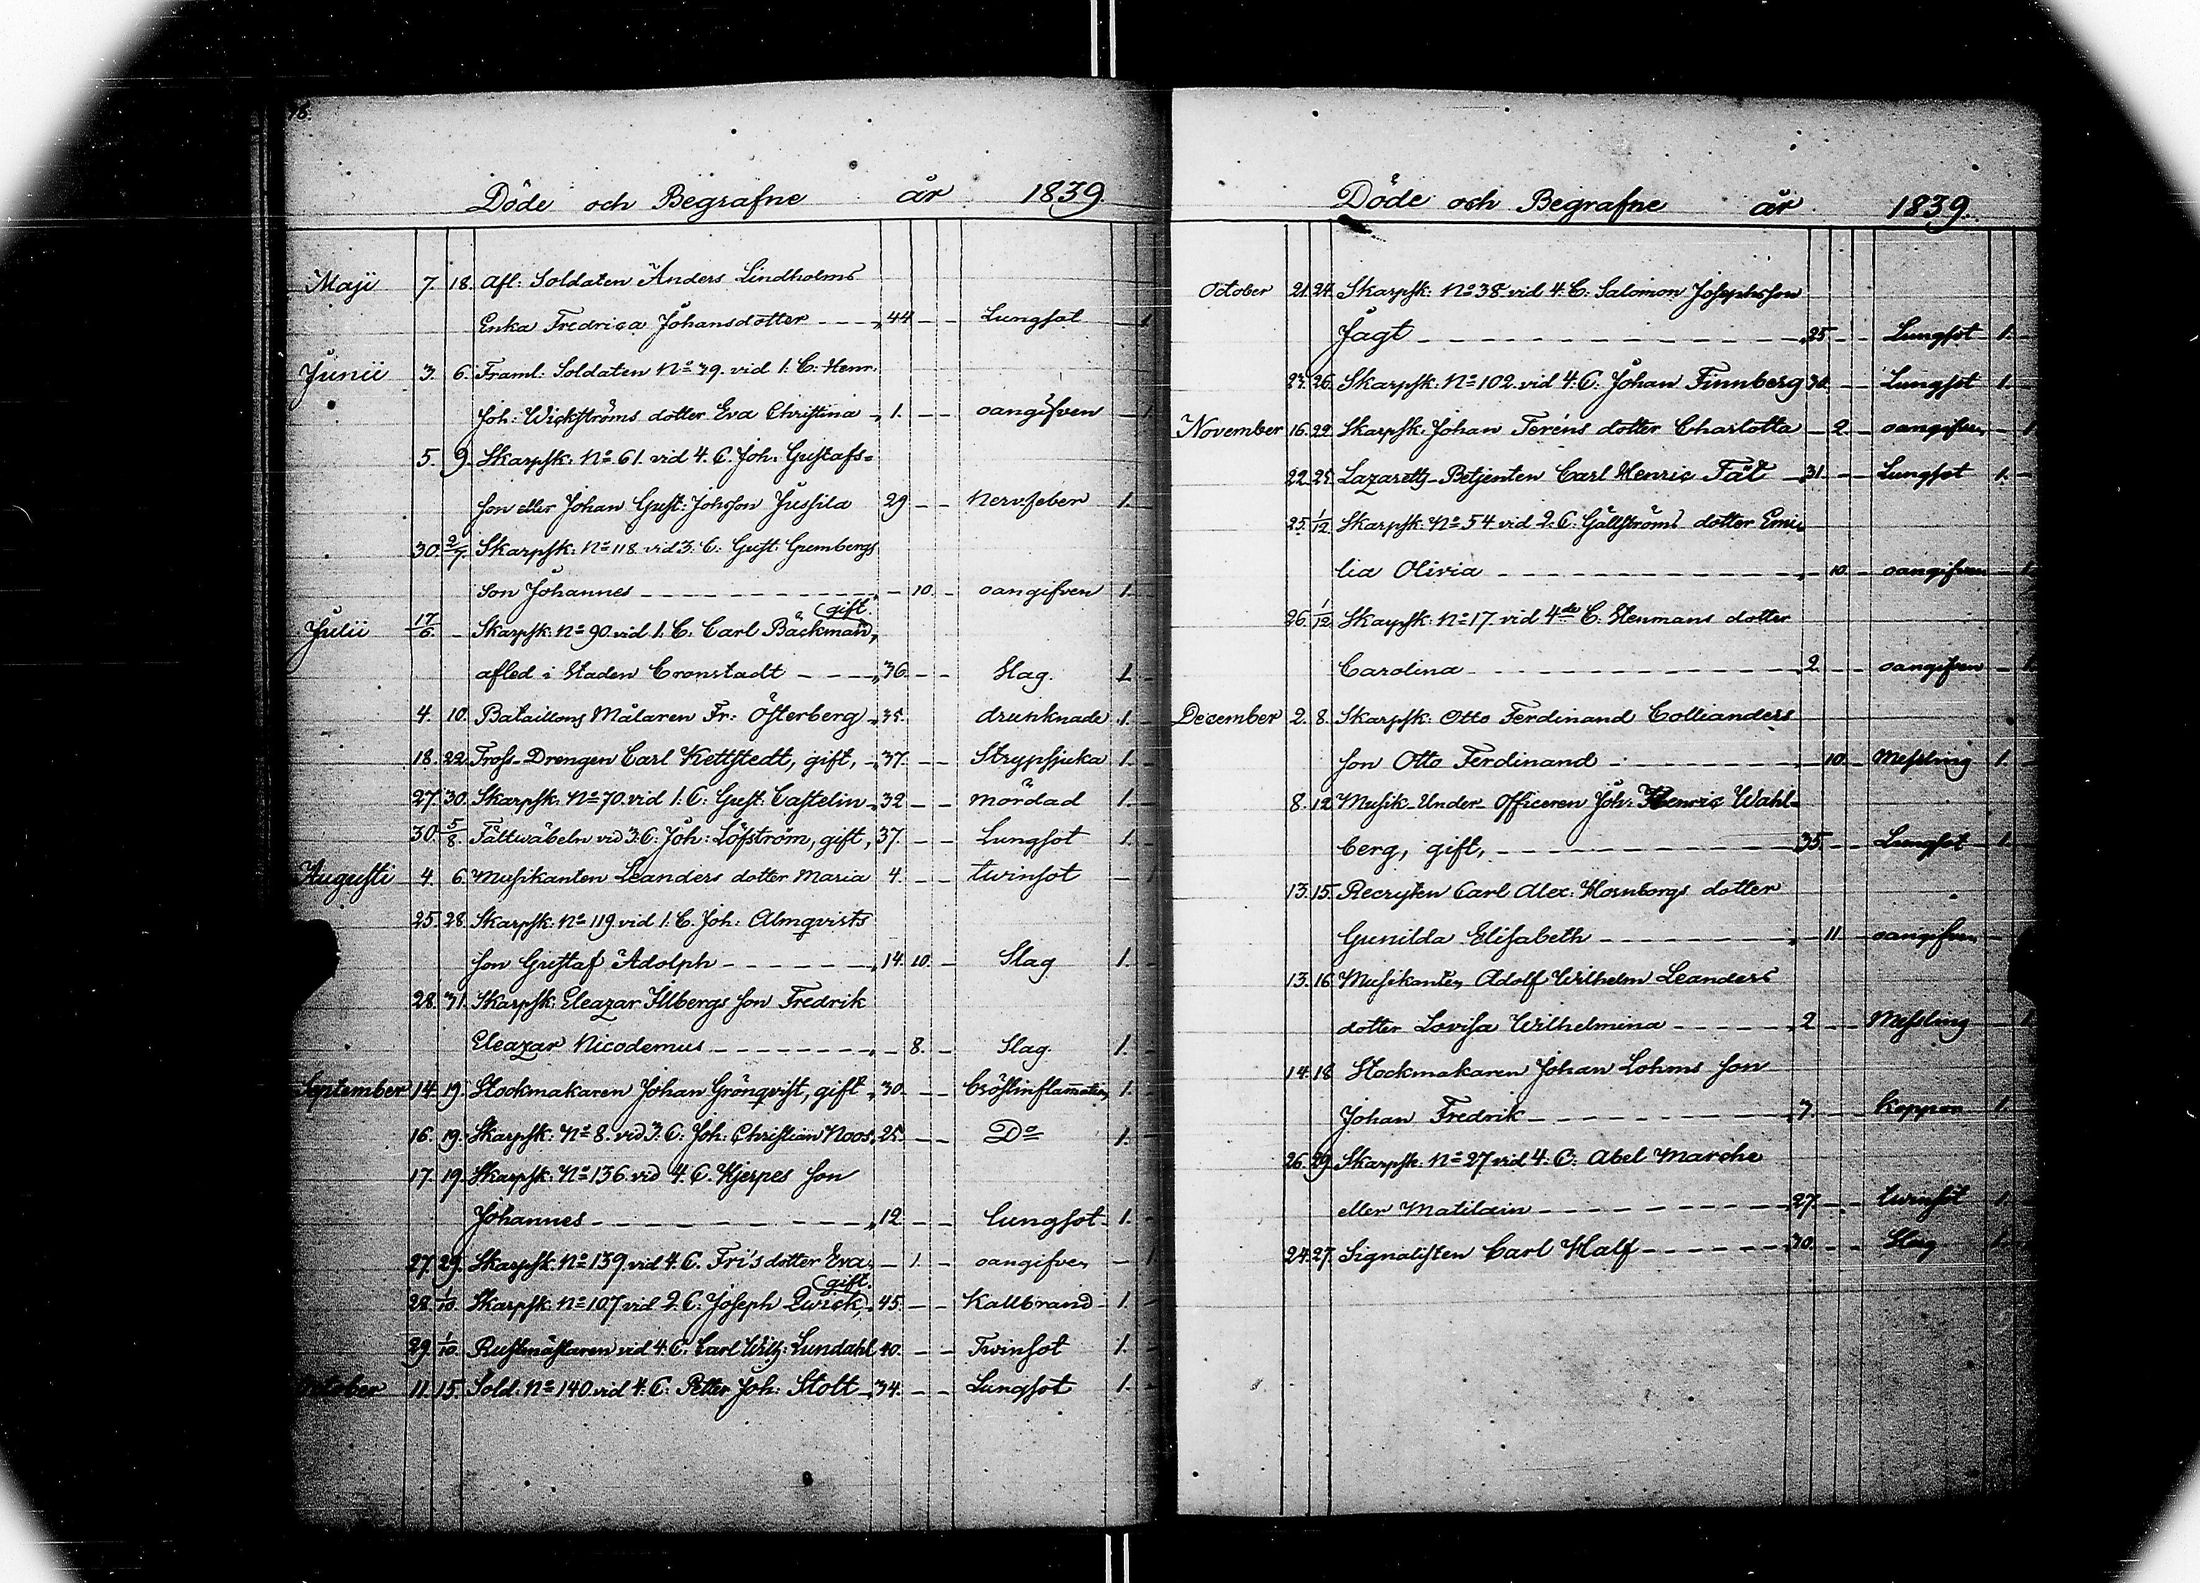 Döde och Begrafne år 1839
Maji 7. 18. Afl: Soldaten Anders Lindholms
Enka Fredrica Johansdotter - - - 44 - - Lungsot - 1
Junii 3. 6. Framl: Soldaten No 39. vid 1. C: Henr.
Joh: Wickströms dotter Eva Christina 1. - - oangifven - 1.
5. 9. Skarpsk: No 61. vid 4. C. Joh. Gustafs=
son eller Johan Gust: Johsson Jussila 29 - - Nervfeber 1. -
30. 2/7. Skarpsk: No 118 vid 3. C: Gust. Grembergs
son Johannes - - - - - 10. - oangifven 1. -
Julii 17/6. - Skarpsk: No 90 vid 1. C. Carl Bäckman, gift.
afled i Staden Cronstadt - - - 36. - - Slag. 1. -
4. 10. Bataillons Målaren Fr: Österberg 35. drunknade 1. -
18. 22. Tross-Drengen Carl Kettstedt, gift, 37. - - Strypsjuka 1. -
27. 30. Skarpsk. No 70. vid 1. C: Gust: Castelin 32 - - mördad 1. -
30. 5/8. Fältwäbeln vid 3. C: Joh: Löfström, gift, 37. - - Lungsot 1. -
Augusti 4. 6. Musikanten Leanders dotter Maria 4. - - twinsot - 1
25. 28. Skarpsk: No 119. vid 1. C. Joh: Almqvists
son Gustaf Adolph - - - - 14. 10. - Slag 1. -
28. 31. Skarpsk: Eleazar Illbergs son Fredrik
Eleazar Nicodemus - - - - - 8. - Slag. 1. -
September 14. 19. Stockmakaren Johan Grönqvist, gift 30. - - bröstinflamation 1. -
16. 19. Skarpsk: No 8. vid 3. C: Joh: Christian Noos. 25. - - Do 1. -
17. 19. Skarpsk: No 136 vid 4. C. Kjerpes son
Johannes - - - - - 12 - - lungsot 1. -
27. 29. Skarpsk: No 139. vid 4. C. Fri's dotter Eva. - 1. - oangifven - 1
28. 1/10. Skarpsk: No 107 vid 2. C. Joseph Qwick, gift. 45. - - Kallbrand 1. -
29. 1/10. Rustmästaren vid 4. C. Carl Wilh: Lundahl 40. - - Twinsot 1. -
October 11. 15. Sold: No 140. vid 4. C: Petter Joh: Stolt 34. - - Lungsot 1. -
Döde och Begrafne år 1839.
October 21. 24. Skarpsk: No 38 vid 4. C. Salomon Josephsson
Jagt - - - - - 25 - - Lungsot 1. -
26. Skarpsk: No 102. vid 4. C: Johan Finnberg 30. - - Lungsot 1. -
November 16. 22. Skarpsk: Johan Ferén's dotter Charlotta - 2. - oangifven - 1.
22. 25. Lazaretts-Betjenten Carl Henric Fält 31. - - Lungsot 1. -
25. 1/12. Skarpsk. No 54 vid 2. C: Gällströms dotter Emi=
lia Olivia - - - - - 10. - oangifven - 1.
26. 1/12. Skarpsk: No 17. vid 4de C: Stenmans dotter
Carolina - - - - - 2. - - oangifven - 1.
December 2. 8. Skarpsk: Otto Ferdinand Collianders
son Otto Ferdinand - - - - - 10. - Messling 1. -
8. 12. Musik-Under-Officeren Joh: Henric Wahl=
berg, gift, - - - - - 35. - - Lungsot 1. -
13. 15. Recryten Carl Alex: Hornborgs dotter
Gunilda Elisabeth - - - - - 11. - oangifven -
13. 16. Musikanten Adolf Wilhelm Leanders
dotter Lovisa Wilhelmina - - - - 2. - - Messling - 1.
14. 18. Stockmakaren Johan Lohms son
Johan Fredrik - - - - - 7. - - Koppor 1. -
26. 29. Skarpsk: No 27 vid 4. C: Abel Marche
eller Matilain - - - - - 27. - - twinsot 1. -
24. 27. Signalisten Carl Half - - - - - 30. - - Slag 1. -